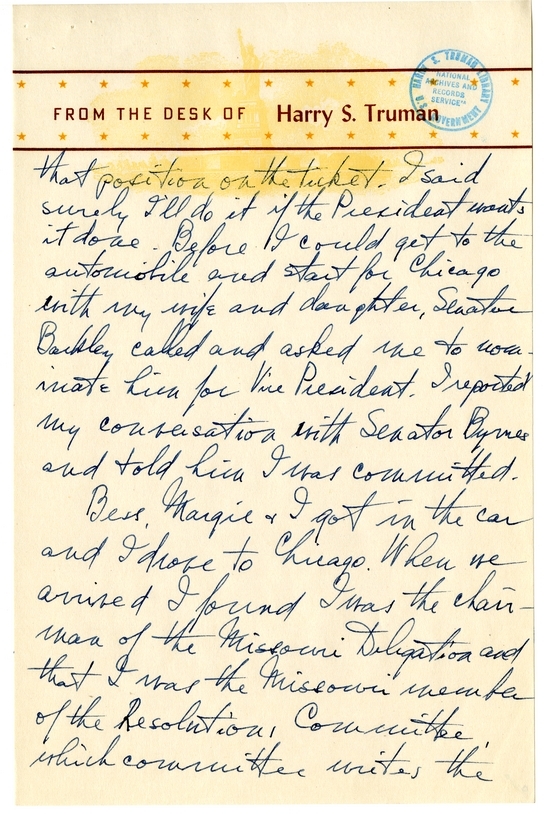 FROM THE DESK OF Harry S. Truman
HARRY S. TRUMAN LIBRARY
NATIONAL
ARCHIVES AND
RECORDS
SERVICE
U.S. GOVERNMENT
that position on the ticket. I said
surely I'll do it if the President wants
it done. Before I could get to the
automobile and start for Chicago
with my wife and daughter, Senator
Barkley called and asked me to nom-
inate him for Vice President. I reported
my conversation with Senator Byrnes
and told him I was committed.
Bess, Margie & I got in the car
and I drove to Chicago. When we
arrived I found I was the chair-
man of the Missouri Deligation and
that I was the Missouri member
of the Resolutions Committee,
which committee writes the